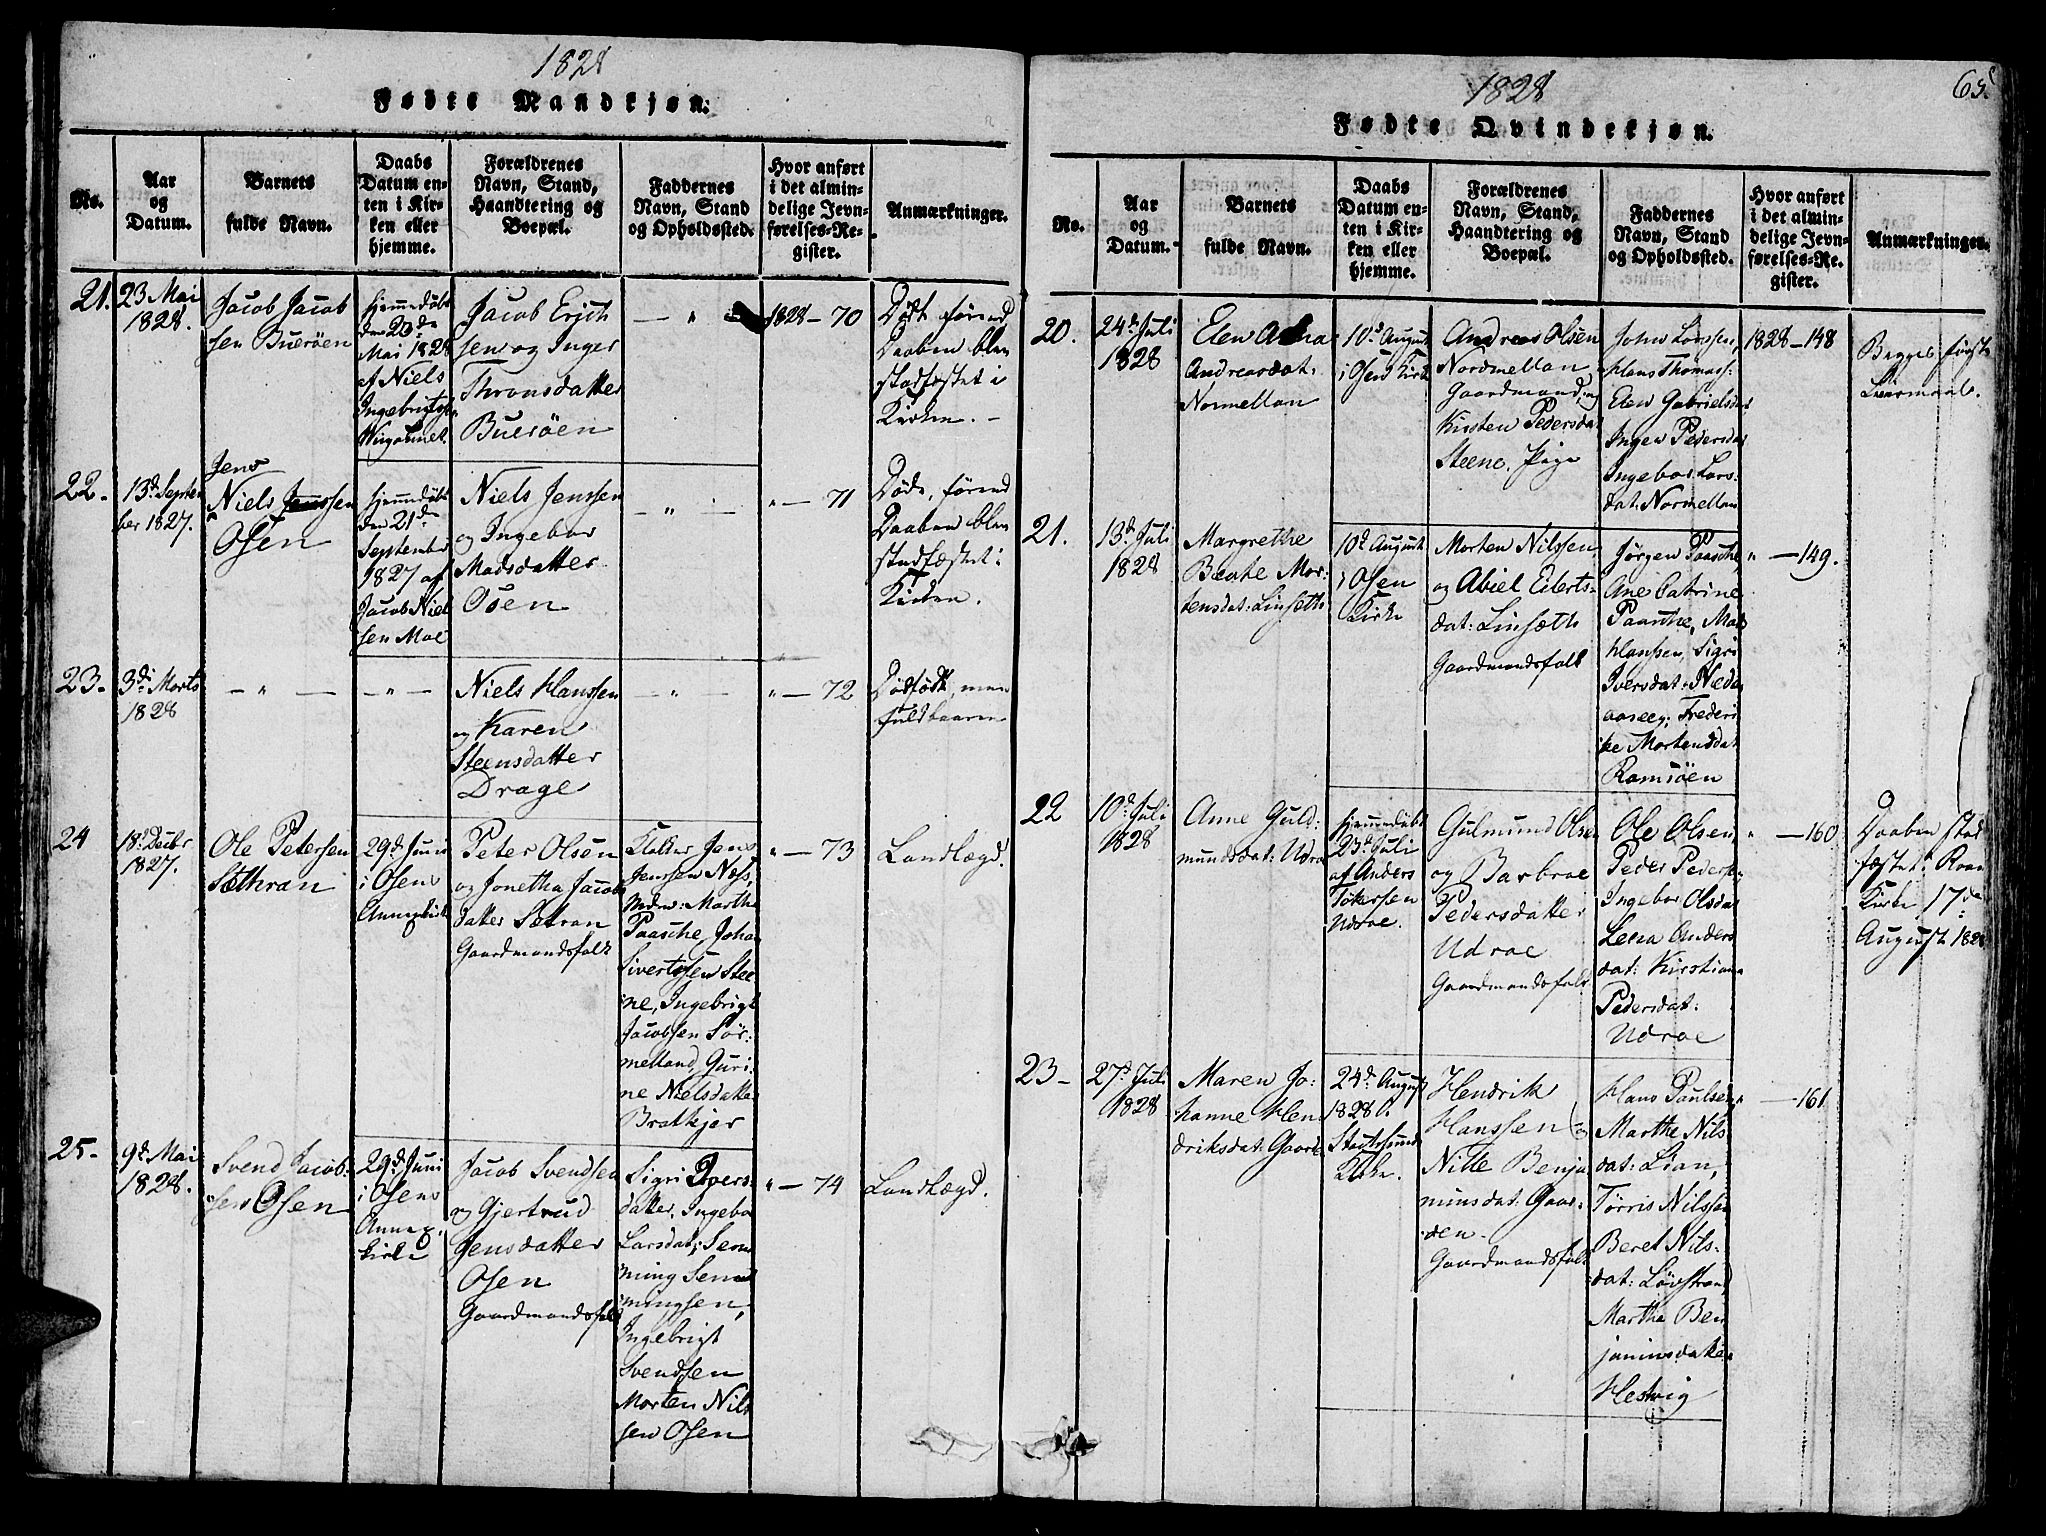 1828
Fødte Mandkjøn.
No.
Aar
og
Datum.
Barnets
fulde Navn.
Daabs
Datum en-
ten i Kir-
ken eller
hjemme.
Forældrenes
Navn, Stand,
Haandtering og
Boepæl.
Faddernes
Navn, Stand
og Opholdssted.
Hvor anført
i det almin-
delige Jevn-
førelses-Re-
gister.
Anmærkninger.
21.
23 Mai
1828.
Jacob Jacob
sen Buerøen
Hjemmedøbt
den 23de
Mai 1828
af Niels
Ingebrigts
Jacob Erich
sen og Inger
Thronsdatter
Buerøen
— " —
1828 — 70
Død førend
Daaben blev
stadfæstet i
Kirken. —
22.
13d Septem
ber 1827.
Jens
Niels Jenssen
Osen
Hjemmedøbt
den 21de
September
1827 af
Jacob Niel
sen Moe
Niels Jenssen
og Ingebor
Madsdatter
Osen
— " —
" — 71
Døde, førend
Daaben blev
stadfæstet i
Kirken.
23.
3d Marts
1828
— " —
— " —
Niels Hanssen
og Karen
Steensdatter
Drage
— " —
" — 72
Dødfødt, men
fuldbaaren
24
18d Decbr
1827.
Ole Petersen
Sæthran
29d Juni
i Osens
Annexkirke
Peter Olsen
og Jonetha Jacobs
datter Sætran
Gaardmandsfolk
Klokker Jens
Jenssen Næss,
Mdm: Marthe
Paasche, Johan
Sivertssen Stee
ne, Ingebrigt
Jacobsen Sør:
melland, Guri:
ne Nielsdatter
Bratkjer
" — 73
Landlægd.
25.
9d Mai
1828.
Svend Jacob:
sen Osen
29d Juni
i Osens
Annex:
kirke
Jacob Svendsen
og Gjertrud
Jensdatter
Osen
Gaardmandsfolk
Sigri Ivers:
datter, Ingebor
Larsdat; Sem
ming Sem
mingsen,
Ingebrigt
Svendsen
Morten Nils
sen Osen
" — 74
Landlægd.
1828
65.
Fødte Qvindekjøn.
No.
Aar
og
Datum.
Barnets
fulde Navn.
Daabs
Datum en-
ten i Kir-
ken eller
hjemme.
Forældrenes
Navn, Stand,
Haandtering og
Boepæl.
Faddernes
Navn, Stand
og Opholdssted.
Hvor anført
i det almin-
delige Jevn-
førelses-Re-
gister.
Anmærkninger.
20.
24d Juli
1828
Elen Anna
Andreasdat:
Normellan
10d August
i Osen Kirke
Andreas Olsen
Nordmellan
Gaardmand, og
Kirsten Pedersdat
Steene, Pige
Johns Larssen,
Hans Thomass:
Elen Gabrielsdat
Inger Pedersdat
Ingebor Lars:
dat: Normellan
1828 — 148
Begges første
Leiermaal.
21.
13d Juli
1828
Margrethe
Beate Mor:
tensdat: Linseth
10d August
i Osen
Kirke
Morten Nilssen
og Abiel Eilerts:
dat: Linsæth
Gaardmandsfolk
Jørgen Paasche,
Ane Catrine
Paasche, Mat
Hanssen, Sigri
Iversdat: Neder
aaseg; Frederi
ke Mortensdat
Ramsöen
" — 149.
22
10d Juli
1828
Anne Guld:
mundsdat: Udroe
Hjemmedøbt
23d Juli
af Anders
Tokersen
Udroe.
Gulmund Olsen
og Barbroe
Pedersdatter
Udroe
Gaardmandsfolk
Ole Olsen,
Peder Peders:
Ingebor Olsdat
Lena Anders
dat: Kirstiana
Pedersdat:
Udroe
" — 160
Daaben stad
fæstet i Roan
Kirke 17de
August 1828
23 —
27d Juli
1828
Maren Jo:
hanne Hen
driksdat: Gaarde
24d August
1828 i
Stoksunds
Kirke.
Hendrik
Hanssen og
Nille Benja
minsdat: Gaar:
den.
Gaardmandsfolk
Hans Paulsen,
Marthe Nils
dat: Lian,
Tørris Nilssen
Beret Nils:
dat: Løvstrand,
Martha Ben
jaminsdatter
Hestvig
" — 161